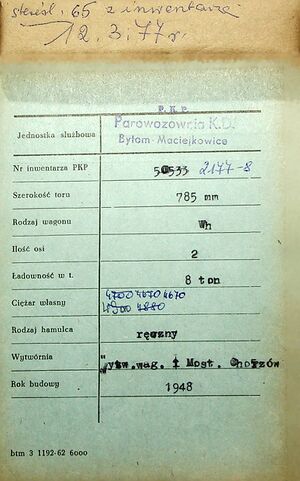 skreśl. 65 z inwentarza
12.3.77 r.
P.K.P.
Jednostka służbowa Parowozownia K.D.
Bytom-Maciejkowice
Nr inwentarza PKP 2177-8
Szerokość toru 785 mm
Rodzaj wagonu Wh
Ilość osi 2
Ładowność w t. 8 ton
Ciężar własny 4700 4670 4670
4900 4880
Rodzaj hamulca ręczny
Wytwórnia Wytw. wag. i Most. Chorzów
Rok budowy 1948
btm 3 1192-62 6000